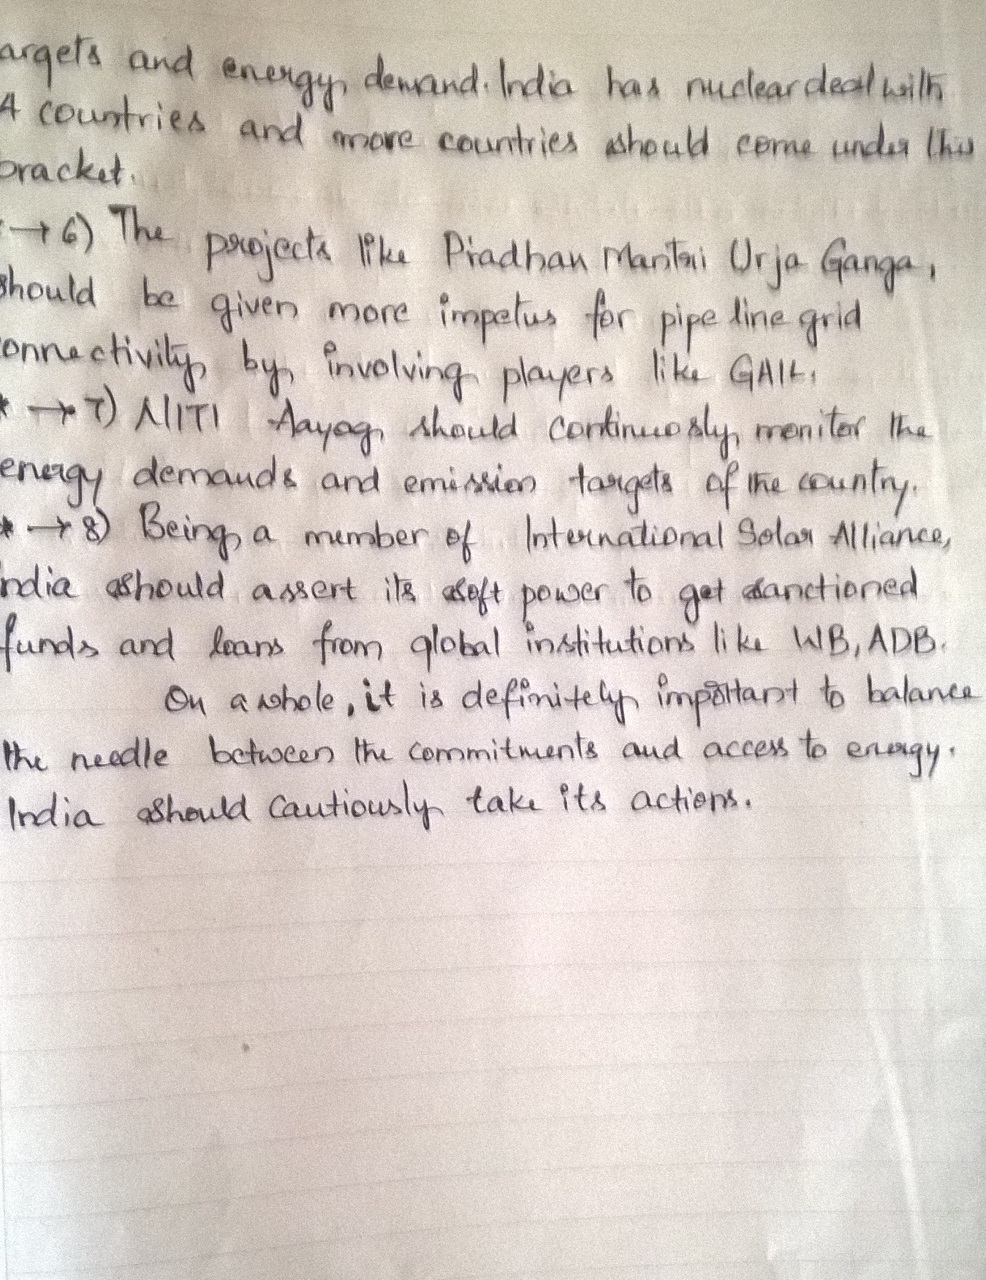 argets and energy demand. India has nuclear deal with
4 countries and more countries should come under this
bracket.
→ 6) The projects like Pradhan Mantri Urja Ganga,
should be given more impetus for pipe line grid
onnectivity by involving players like GAIL.
* → 7) NITI Aayog should continuosly moniter the
energy demands and emission targets of the country.
* → 8) Being a member of International Solar Alliance,
ndia should assert its soft power to get sanctioned
funds and loans from global institutions like WB, ADB.
On a whole, it is definitely important to balance
the needle between the commitments and access to energy.
India should cautiously take its actions.